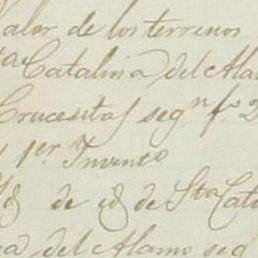 Valor de los terrenos
Sta Catalina del Alam
Crucesitas segn fs 2
y 1er Invento
Id de id de Sta Cata
na del Alamo seg